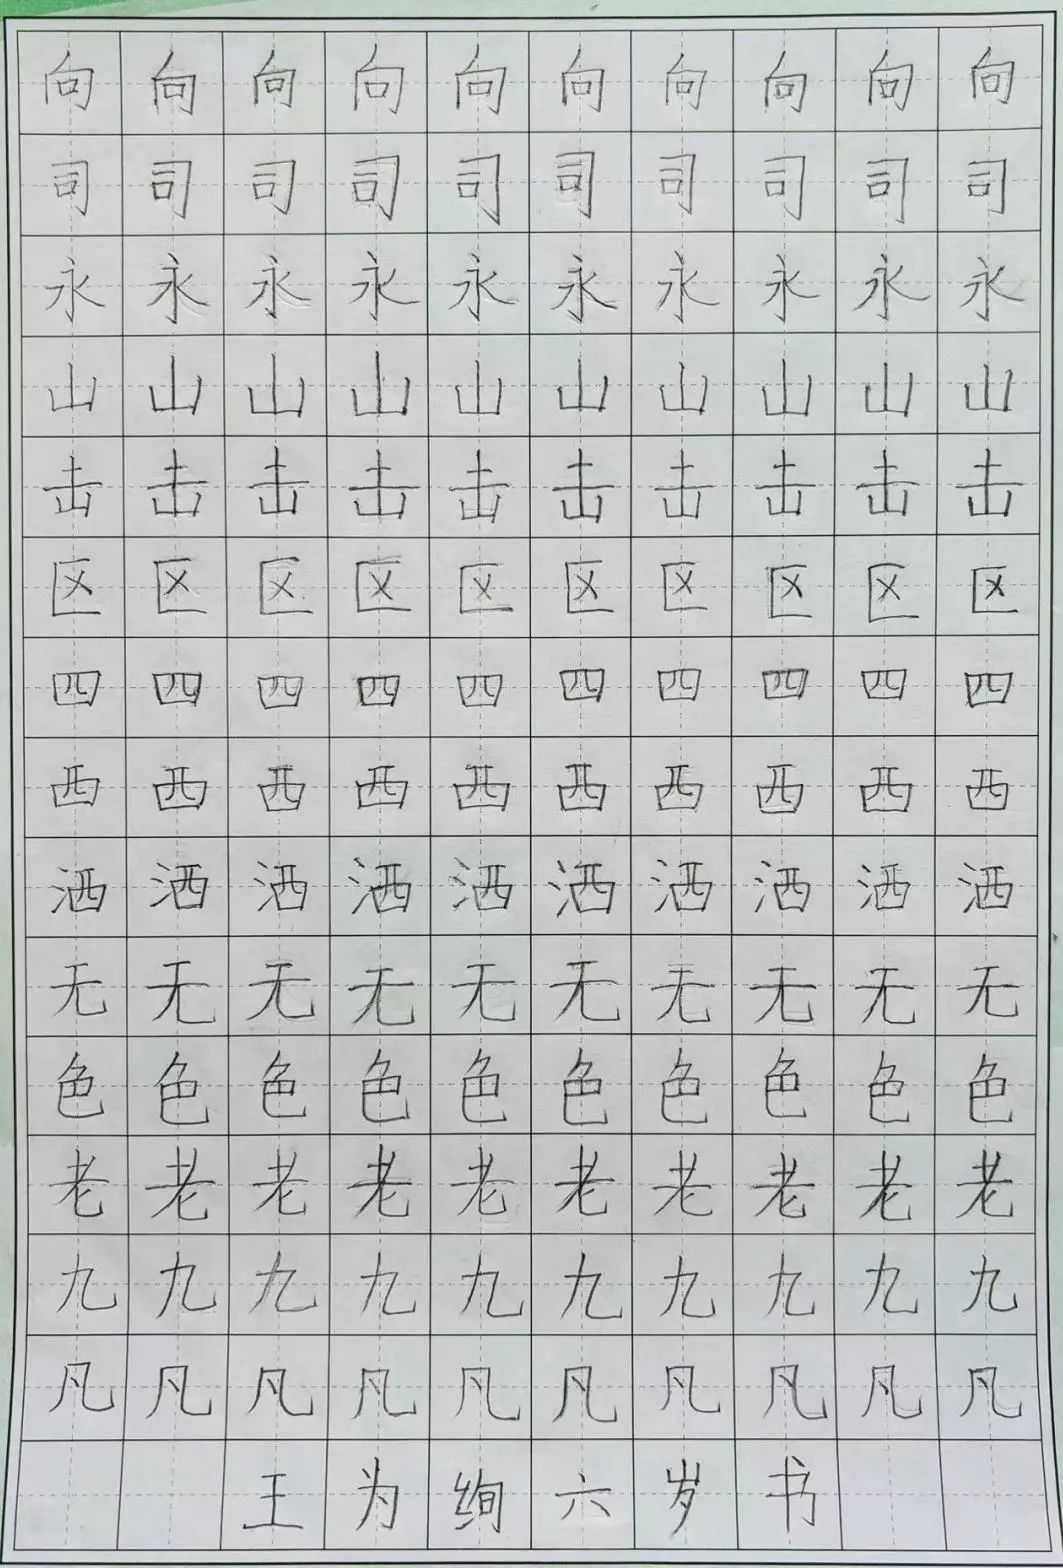 向向向向向向向向向向
司司司司司司司司司司
永永永永永永永永永永
山山山山山山山山山山
击击击击击击击击击击
区区区区区区区区区区
四四四四四四四四四四
西西西西西西西西西西
洒洒洒洒洒洒洒洒洒洒
无无无无无无无无无无
色色色色色色色色色色
老老老老老老老老老老
九九九九九九九九九九
凡凡凡凡凡凡凡凡凡凡
王为绚六岁书